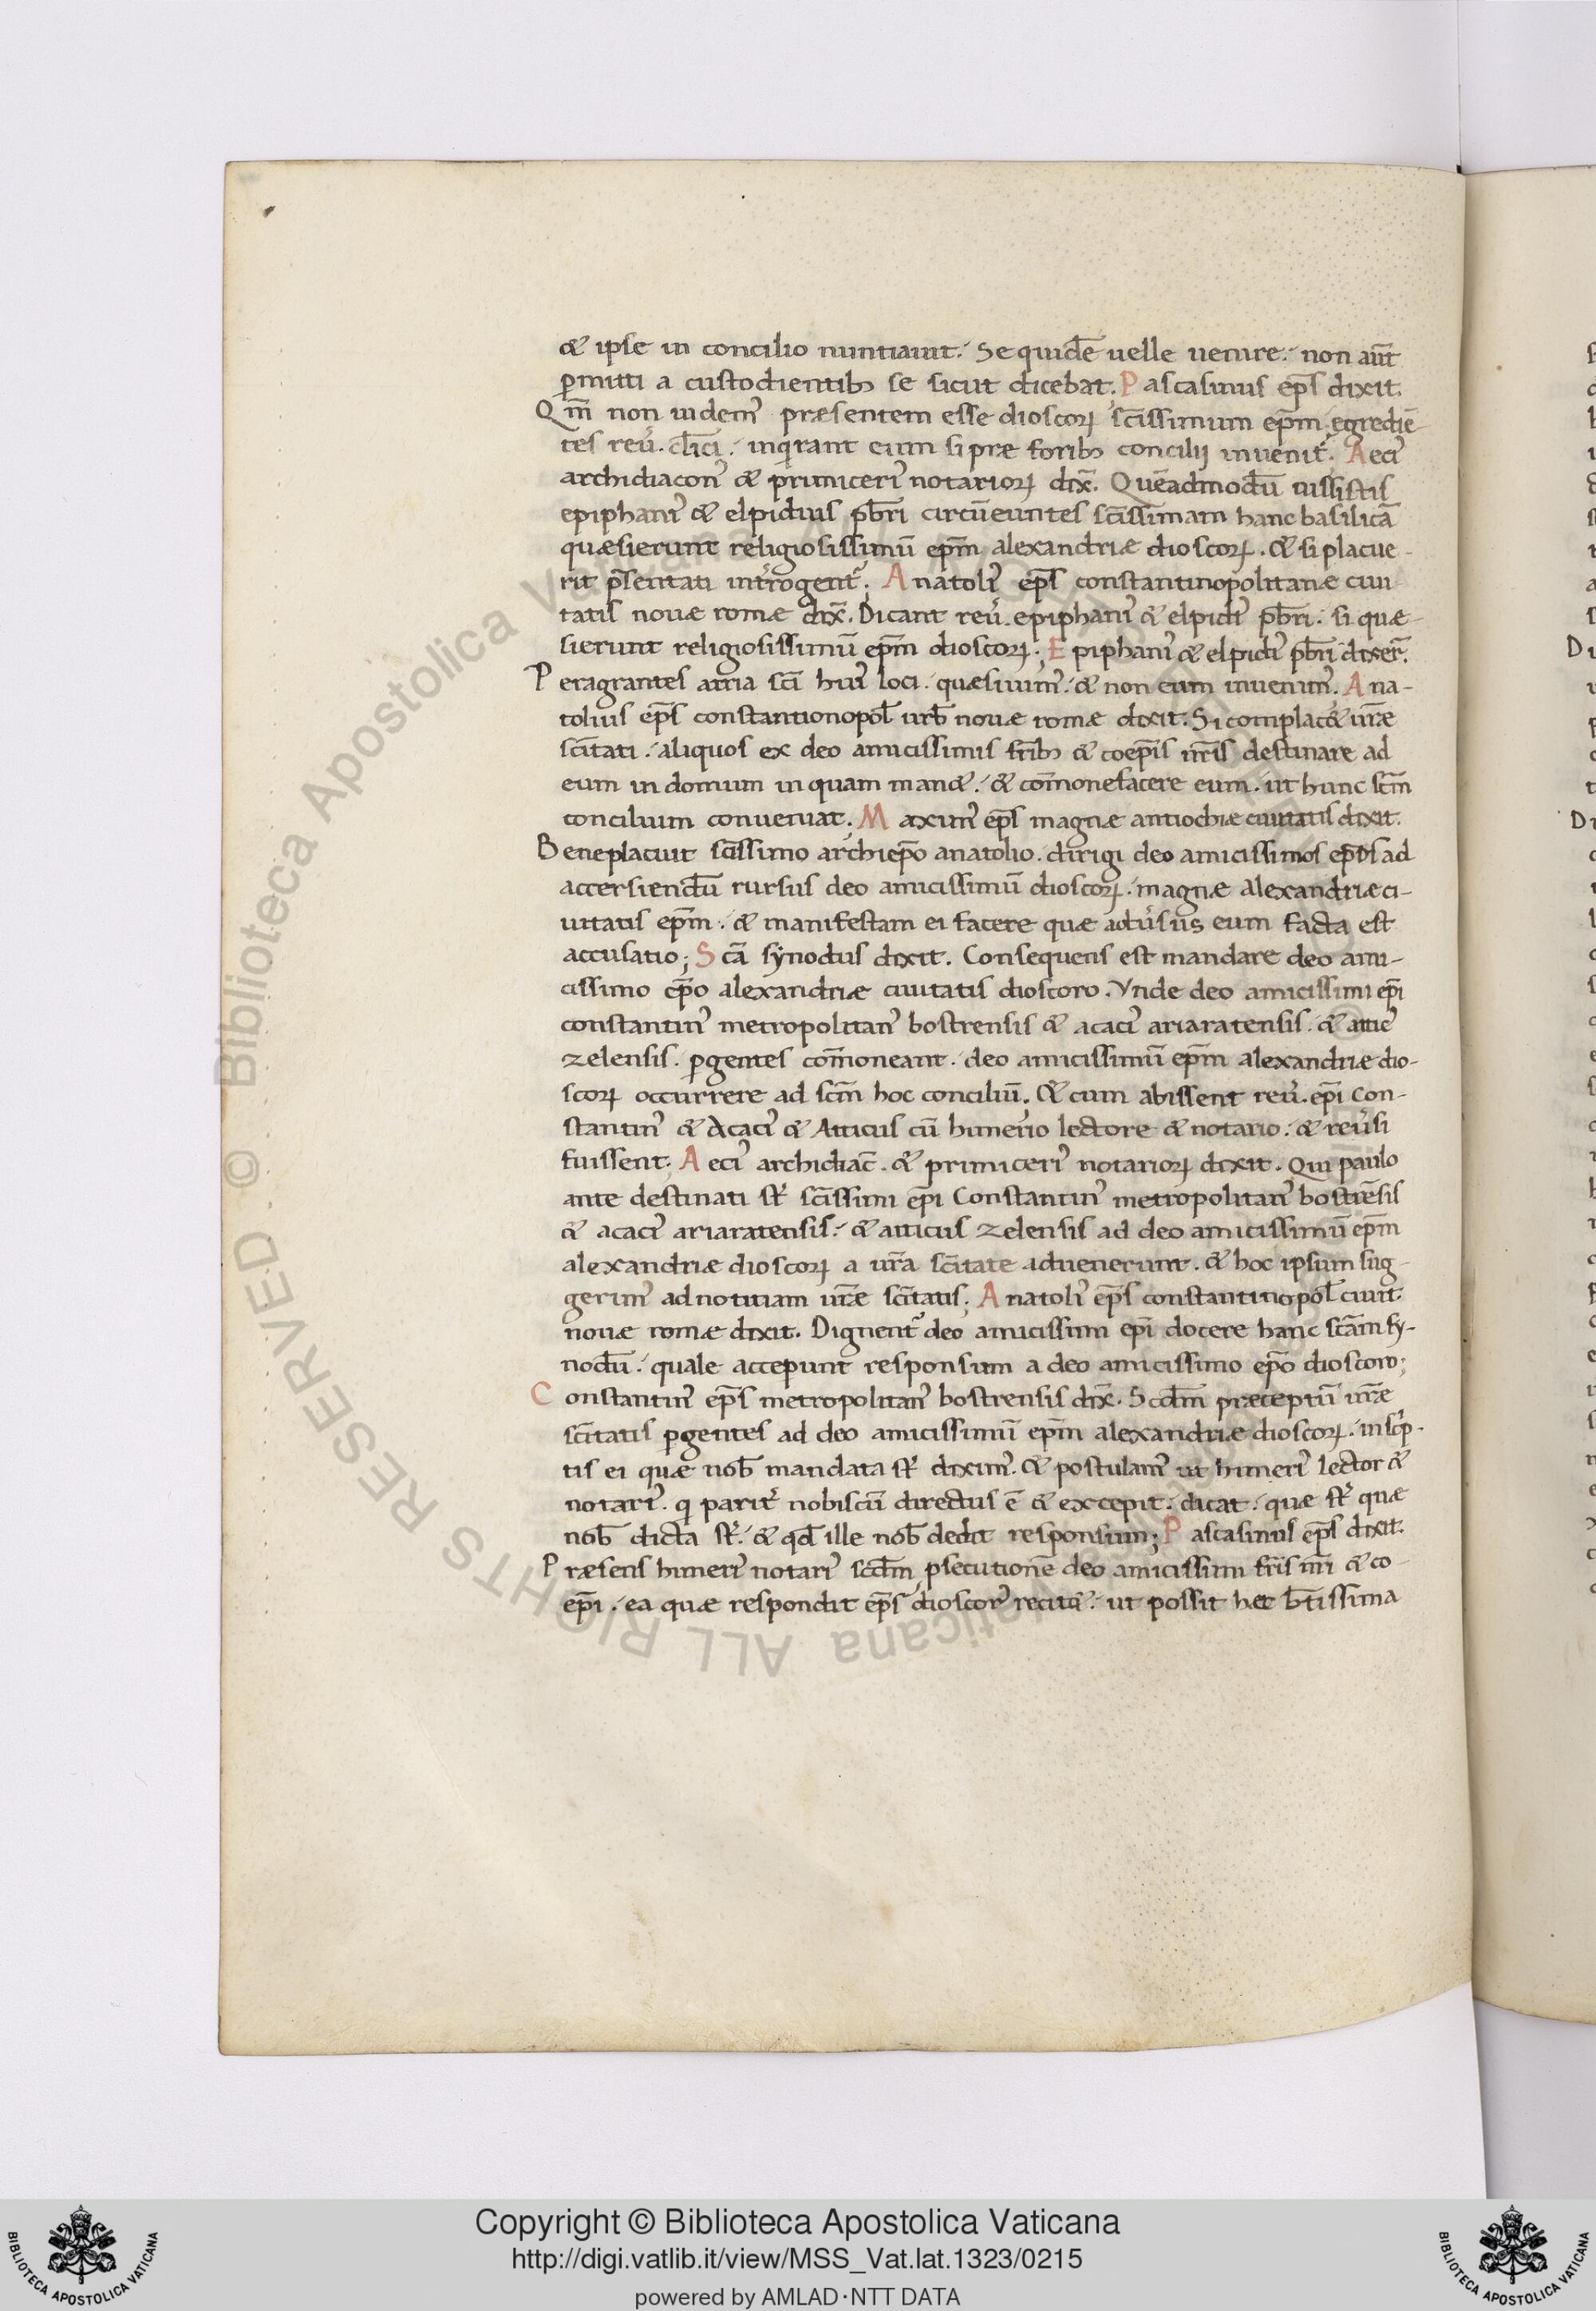 & ipse in concilio nuntiauit. Se quidē uelle uenire. non aūt
ꝑmitti a custodientibꝫ se sicut dicebat. Pascasinus ep̄s dixit.
Qm̄ non uidem᾽ præsentem esse dioscorꝝ sc̄issimum ep̄m egrediē
tes reu᾽. cl̄ici. inqirant eum si præ foribꝫ concilij inuenit᾽. Aeci᾽
archidiacon᾽ & primiceri᾽ notariorꝝ dix̄. Quēadmodū iussistis
epiphani᾽ & elpidius pb̄ri circūeuntes sc̄issimam hanc basilicā
quæsierunt religiosissimū ep̄m alexandriæ dioscorꝝ. & si placue-
rit p̄sentati int᾽rogent᾽; Anatoli᾽ ep̄s constantinopolitanæ ciui
tatis nouæ romæ dix̄. Dicant reu᾽. epiphani᾽ & elpidi᾽ pb̄ri. si quæ-
sierunt religiosissimū ep̄m dioscorꝝ; Epiphani᾽ & elpidi᾽ pb̄ri dixer̄.
Peragrantes atria sc̄i hui᾽ loci. quæsiuim᾽. & non eum inuenim᾽. Ana-
tolius ep̄s constantionopol̄ urb̄ nouæ romæ dixit. Si complac& ur̄æ
sc̄itati. aliquos ex deo amicissimis fr̄ibꝫ & coep̄is nr̄is destinare ad
eum in domum in quam man&. & com̄onefacere eum. ut hunc sc̄m
concilium conueniat; Maxim᾽ ep̄s magnæ antiochiæ ciuitatis dixit.
Beneplacuit sc̄issimo archiep̄o anatolio. dirigi deo amicissimos ep̄os ad
accersiendū rursus deo amicissimū dioscorꝝ. magnæ alexandriæ ci-
uitatis ep̄m. & manifestam ei facere quæ adu᾽sus eum facta est
accusatio; Sc̄a synodus dixit. Consequens est mandare deo ami-
cissimo ep̄o alexandriæ ciuitatis dioscoro. Vnde deo amicissimi ep̄i
constantin᾽ metropolitan᾽ bostrensis & acaci᾽ ariaratensis. & attic᾽
zelensis. ꝑgentes com̄oneant. deo amicissimū ep̄m alexandriæ dio-
scorꝝ occurrere ad sc̄m hoc conciliū; & cum abissent reu᾽. ep̄i con-
stantin᾽ & Acaci᾽ & Atticus cū himerio lectore & notario. & reu᾽si
fuissent. Aeci᾽ archidiac̄. & primiceri᾽ notariorꝝ dixit. Qui paulo
ante destinati st᾽ sc̄issimi ep̄i Constantin᾽ metropolitan᾽ bostrēsis
& acaci᾽ ariaratensis. & atticus zelensis ad deo amicissimū ep̄m
alexandriæ dioscorꝝ a ur̄a sc̄itate aduenerunt. & hoc ipsum sug-
gerim᾽ ad notitiam ur̄æ sc̄itatis; Anatoli᾽ ep̄s constantinopol̄ ciuit̄.
nouæ romæ dixit. Dignent᾽ deo amicissimi ep̄i docere hanc sc̄am sy-
nodū. quale acceꝑunt responsum a deo amicissimo ep̄o dioscoro;
Constantin᾽ ep̄s metropolitan᾽ bostrensis dix̄. Scd̄m præceptū ur̄æ
sc̄itatis ꝑgentes ad deo amicissimū ep̄m alexandriæ dioscorꝝ. inscp-
tis ei quæ nob̄ mandata st᾽ dixim᾽. & postulam᾽ ut himeri᾽ lector &
notari᾽. qi parit᾽ nobiscū directus ē & excepit. dicat. quæ st᾽ quæ
nob̄ dicta st᾽. & qd̄ ille nob̄ dedit responsum; Pascasinus ep̄s dixit.
Præsens himeri᾽ notari᾽ scd̄m ꝓsecutionē deo amicissimi fr̄is nr̄i & co-
ep̄i. ea quæ respondit ep̄s dioscor᾽ recit&. ut possit hec b̄tissima
Copyright © Biblioteca Apostolica Vaticana
http://digi.vatlib.it/view/MSS_Vat.lat.1323/0215
powered by AMLAD·NTT DATA
BIBLIOTECA APOSTOLICA VATICANA
BIBLIOTECA APOSTOLICA VATICANA
© Biblioteca Apostolica Vaticana ALL RIGHTS RESERVED